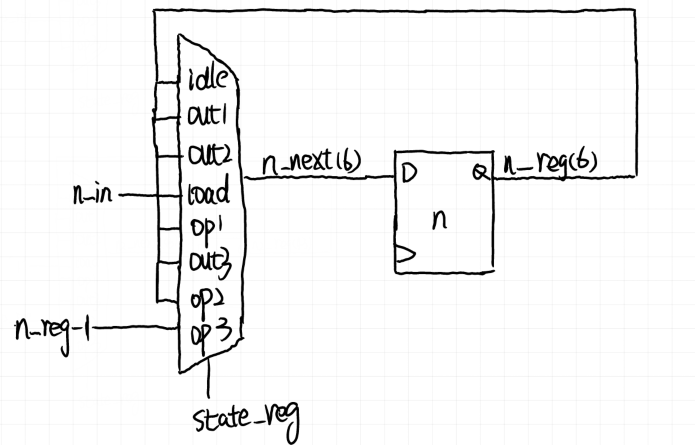 idle
out1
out2
n_in
load
op1
out3
op2
n_reg-1
op3
state_reg
n_next(6)
D
Q
n
n_reg(6)